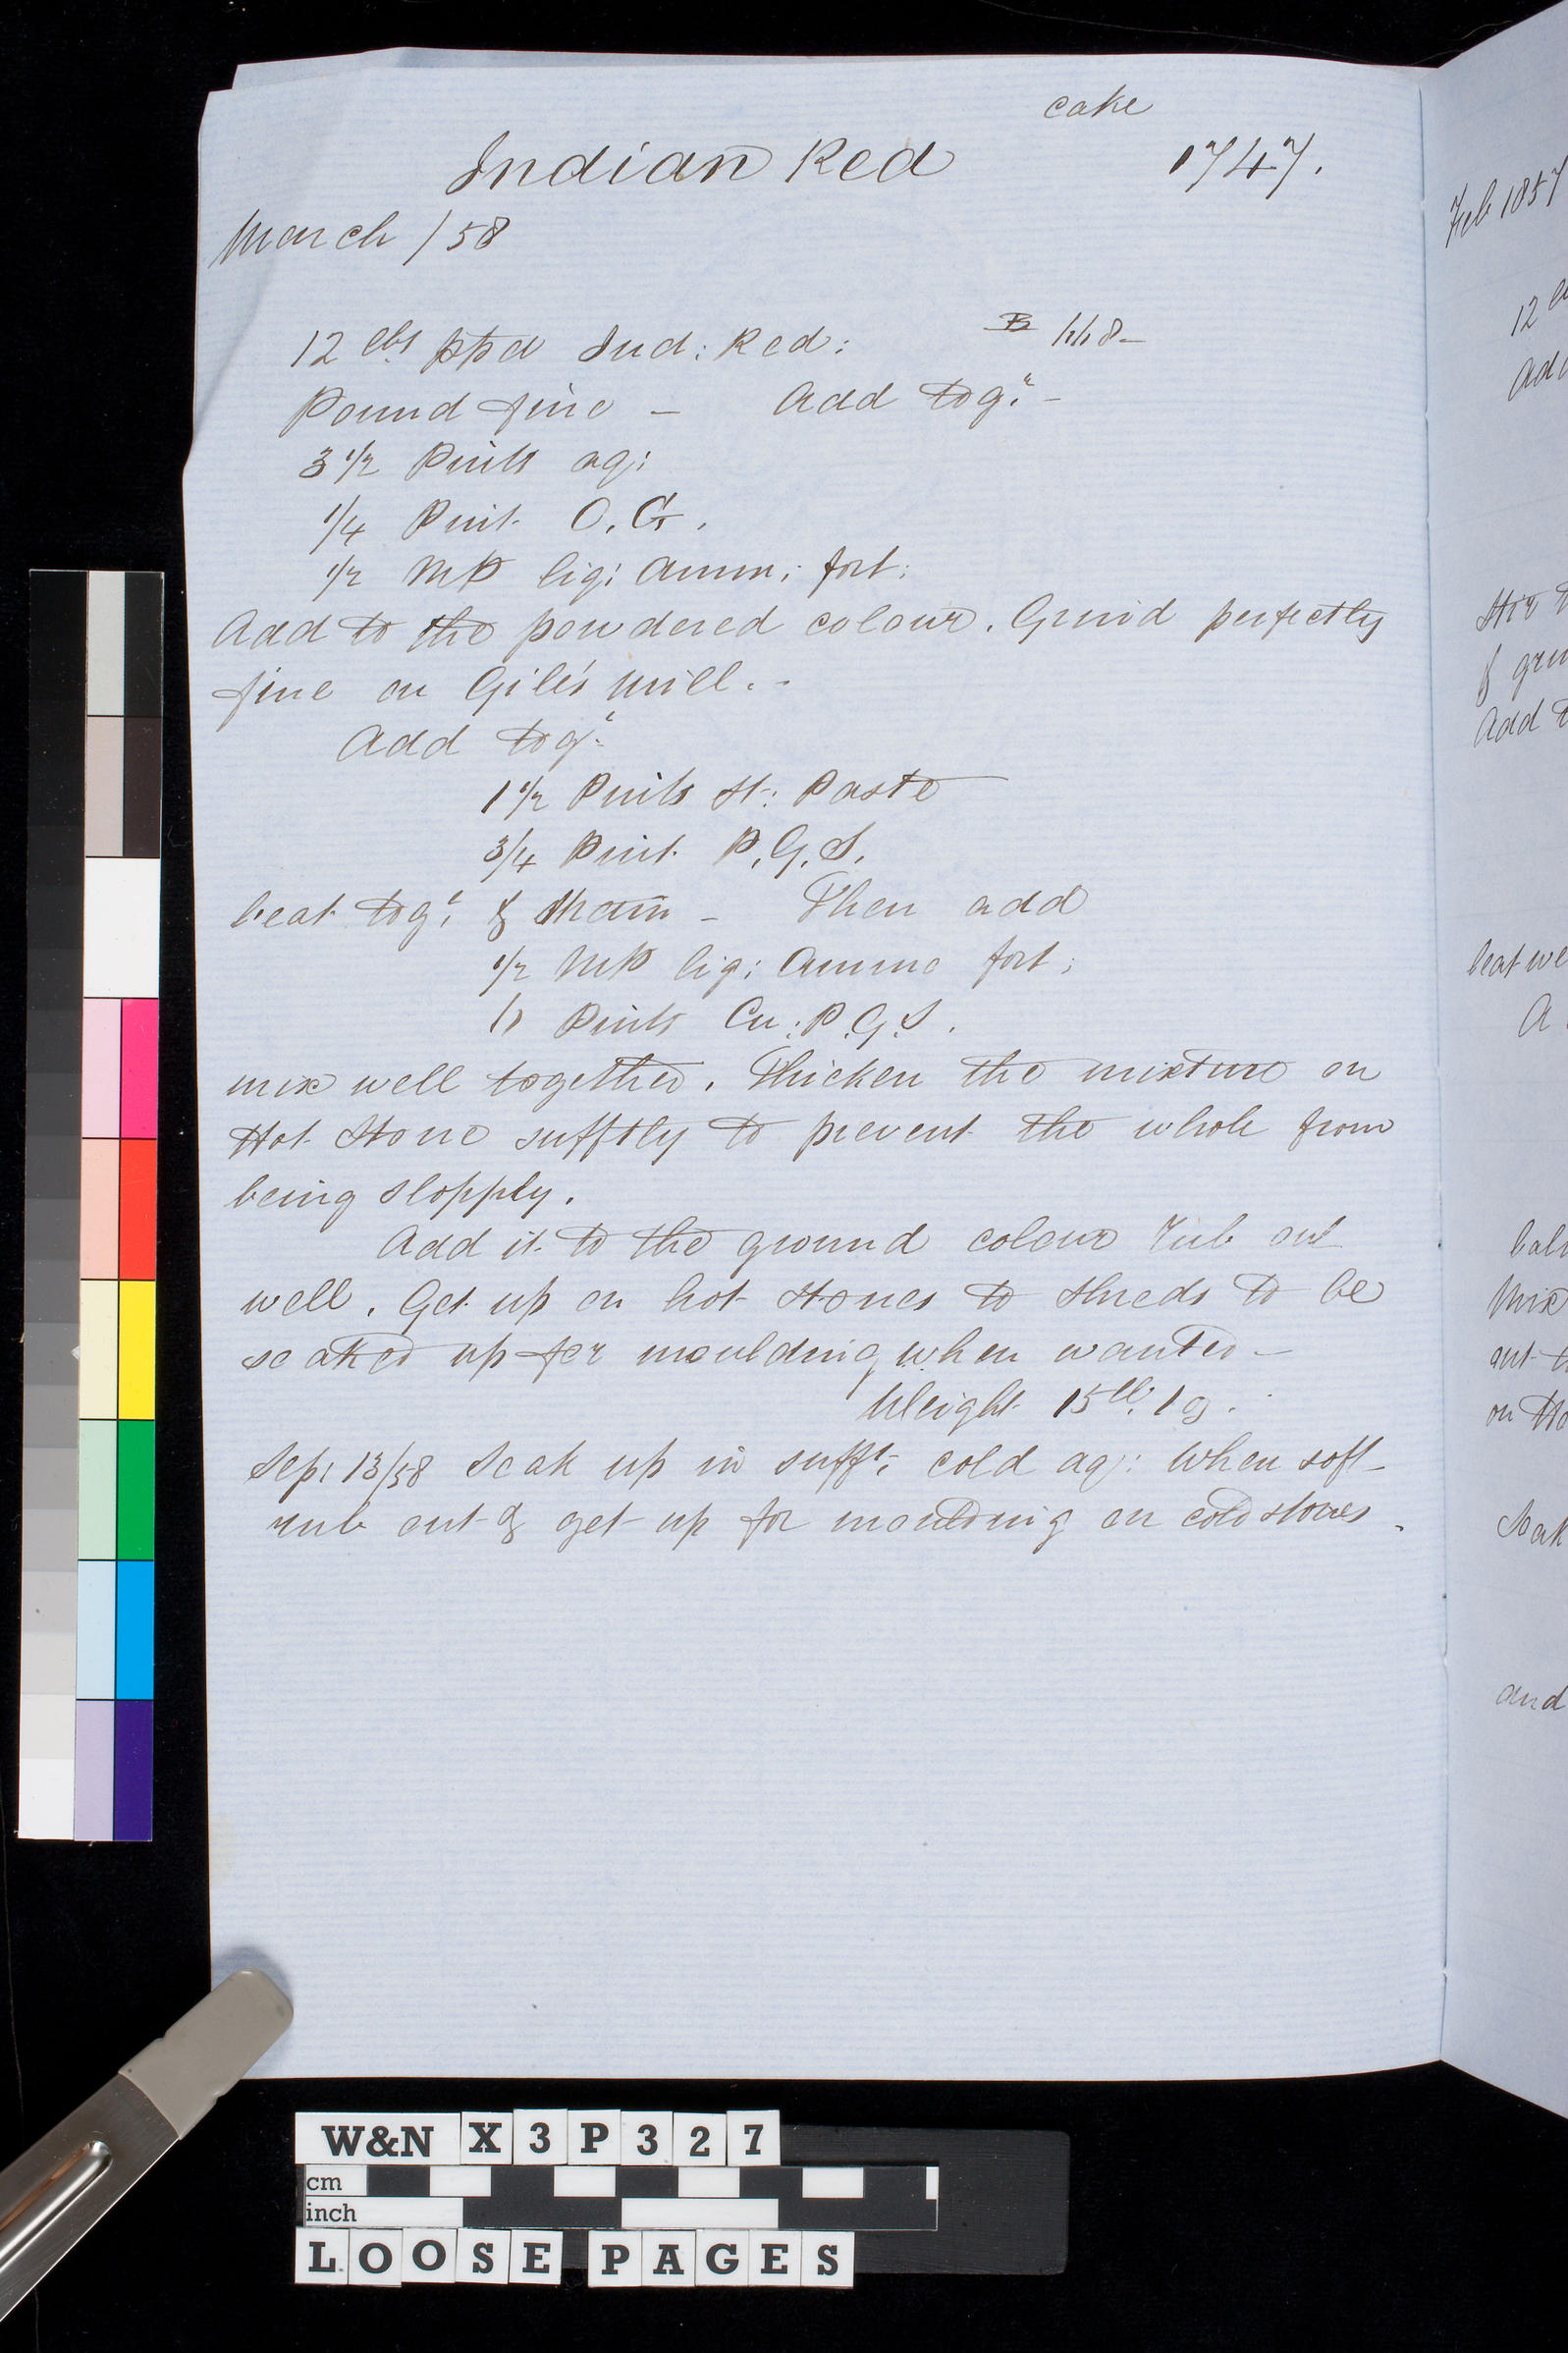 cake
Indian Red 1747.
March /58
12 lbs ppd Ind: Red:
Pound fine – Add togr –
3 1/2 Pints aq:
1/4 Pint O.G.
1/2 MP liq: Amm: fort:
Add to the powdered colour. Grind perfectly
fine on Gile's mill. -
Add togr
1 1/2 Pints St: Paste
3/4 Pint P.G.S.
beat togr & strain – Then add
1/2 MP liq: Ammo fort:
Pints Cu: P.G.S.
mix well together. Thicken the mixture on
Hot Stone sufftly to prevent the whole from
being slopply.
Add it to the ground colour rub out
well. Get up on hot stones to shreds to be
soaked up for moulding when wanted –
Weight 15 lb. 1 oz.
Sep: 13/58 Soak up in sufft: cold aq: When soft –
rub out & get up for moulding on cold stones.
Feb 1857
12
Add
Stir
& grin
Add t
beat we
A
Mix
out t
on
Soak
and
W&N X3P327
cm
inch
LOOSE PAGES